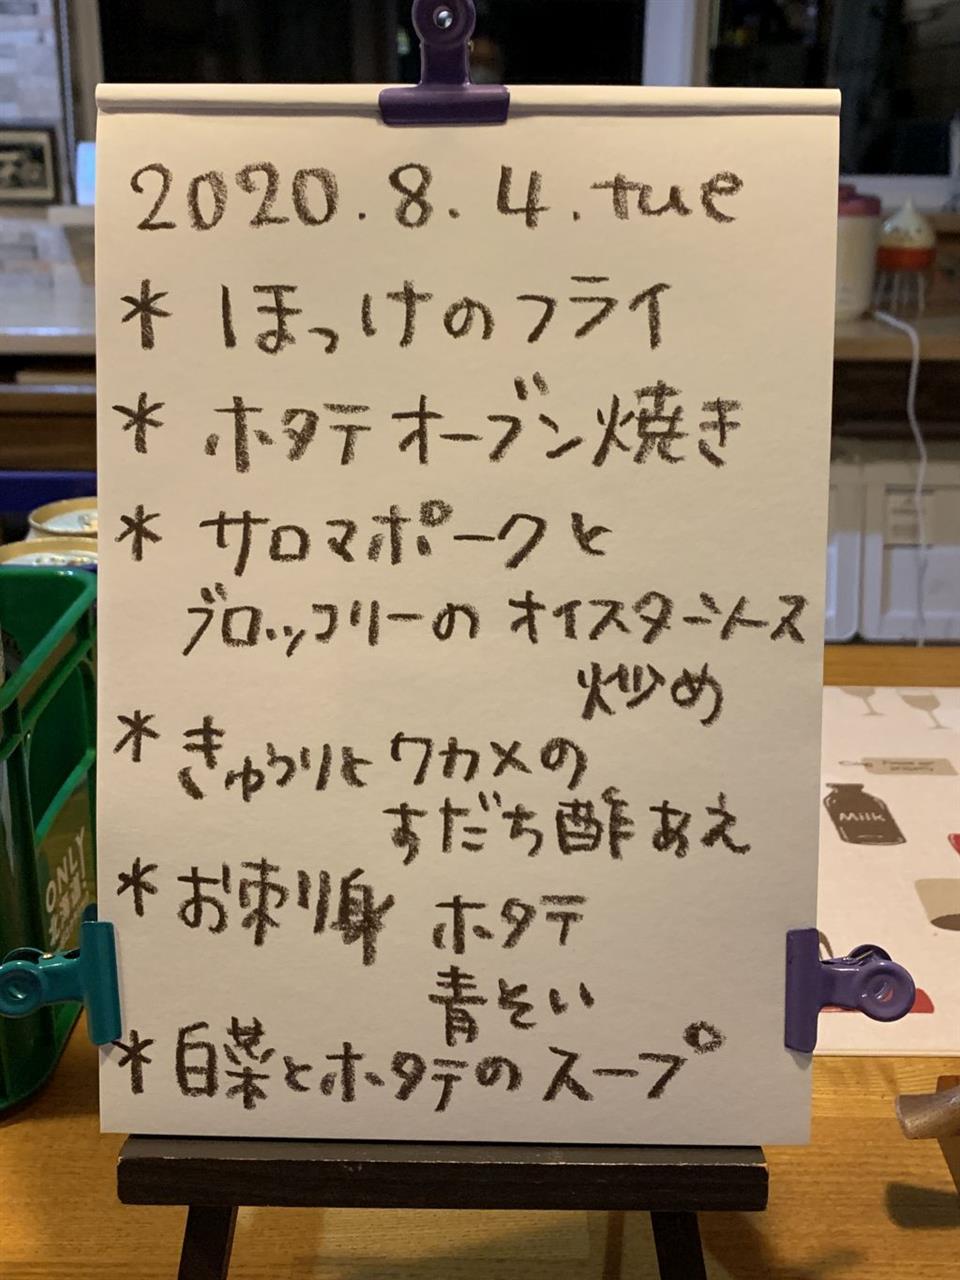 2020.8.4.tue
* ほっけのフライ
* ホタテオーブン焼き
* サロマポークと
ブロッコリーのオイスターソース
炒め
* きゅうりとワカメの
すだち酢あえ
* お刺り身 ホタテ
青そい
* 白菜とホタテのスープ
ONLY
Milk